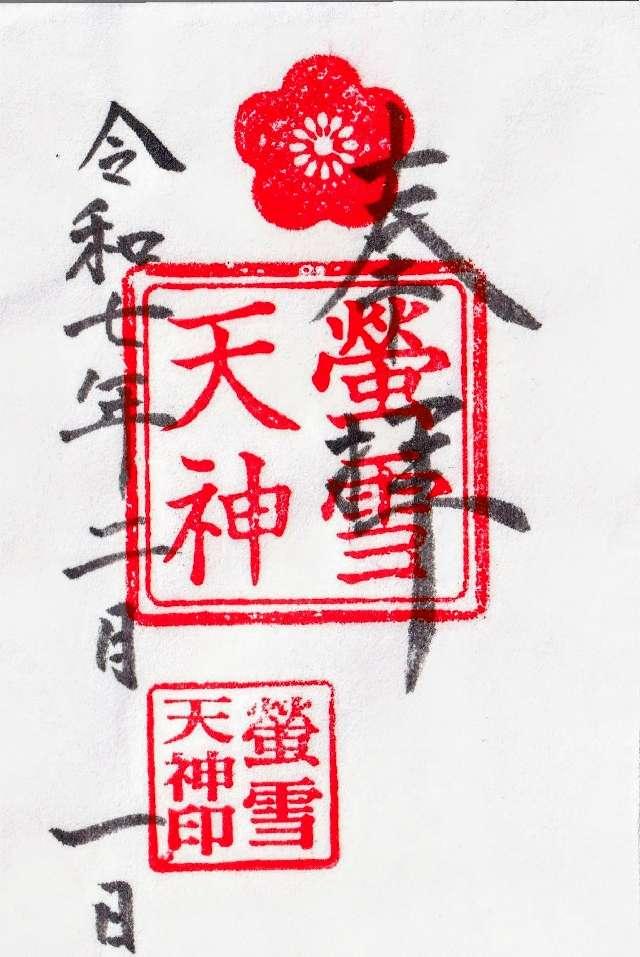 奉拝
螢雪
天神
令和七年二月一日
螢雪
天神印